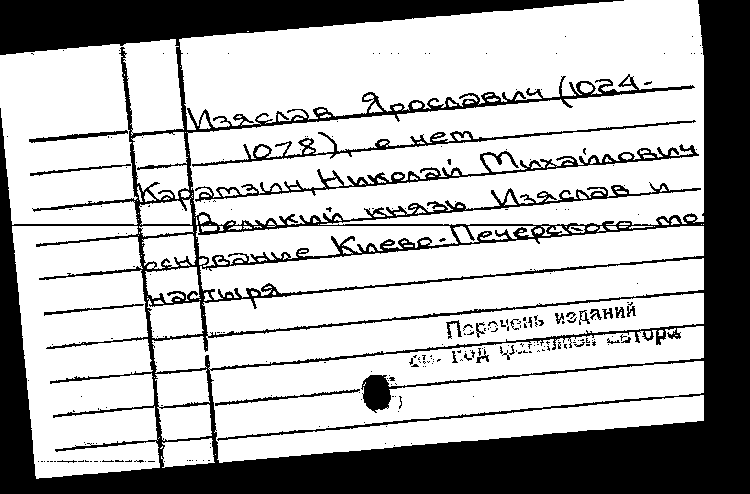 Изяслав Ярославич (1024-
1078), о нем.
Карамзин, Николай Михайлович
Великий князь Изяслав и
основание Киево-Печерского мо-
настыря
Перечень изданий
см. под фамилией автора